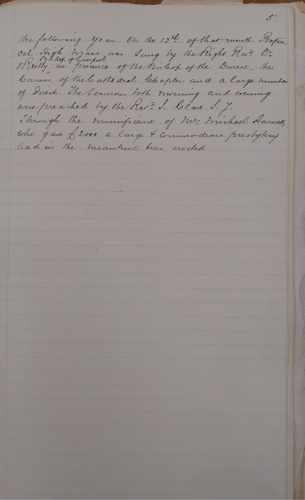 5.
the following year. On the 13th of that month Pontifi
cal High Mass was sung by the Right Revd. Dr.
Bishop of Liverpool
O'Reilly in presence of the Bishop of the Diocese, the
Canons of the Cathedral Chapter and a large number
of Priests. The Sermons both morning and evening
were preached by the Revd. I. Clare. S. J.
Through the munificence of Mr. Michael
who gave £2000 a large & commodious presbytery
had in the meantime been erected.